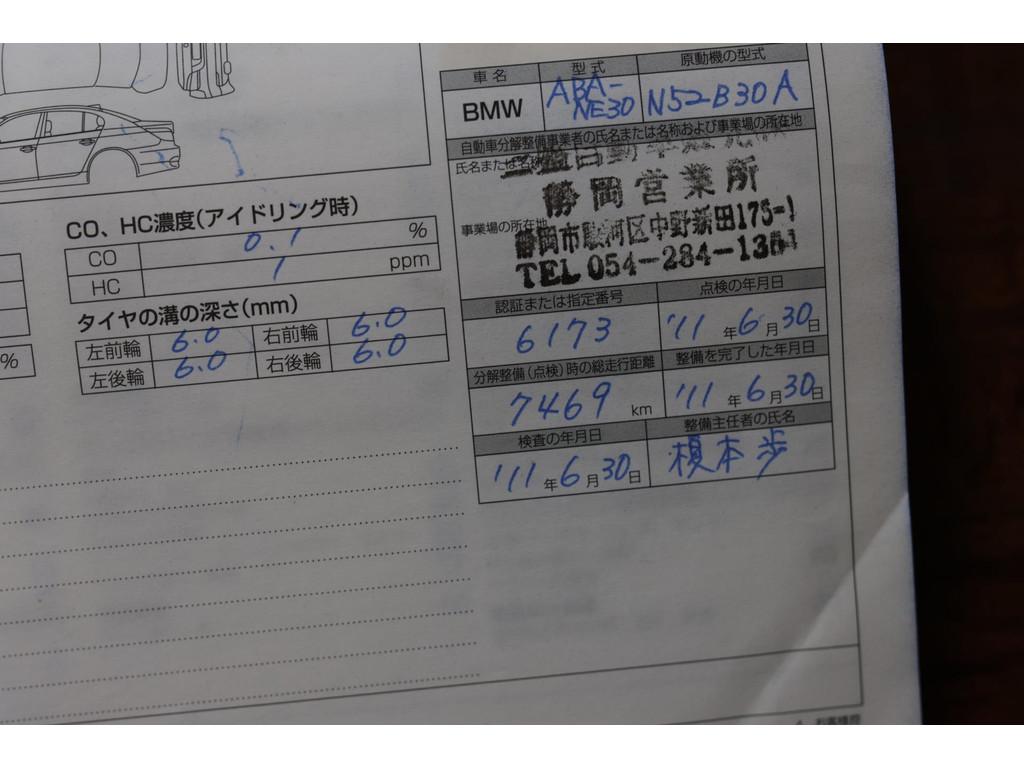 CO、HC濃度(アイドリング時)
CO 0.1 %
HC 1 ppm
タイヤの溝の深さ(mm)
左前輪 6.0 右前輪 6.0
左後輪 6.0 右後輪 6.0
%
車名 型式 原動機の型式
BMW ABA-NE30 N52B30A
自動車分解整備事業者の氏名または名称および事業場の所在地
氏名または名称
静岡営業所
事業場の所在地
静岡市駿河区中野新田175-1
TEL 054-284-1351
認証または指定番号 点検の年月日
6173 '11年6月30日
分解整備(点検)時の総走行距離 整備を完了した年月日
7469 km '11年6月30日
検査の年月日 整備主任者の氏名
'11年6月30日 榎本歩
お客様控